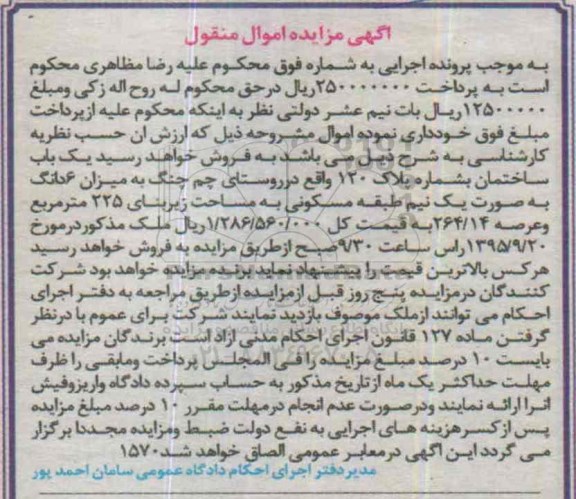 آگهی مزایده اموال منقول
به موجب پرونده اجرایی به شماره فوق محکوم علیه رضا مظاهری محکوم
است به پرداخت ۲۵۰۰۰۰۰۰۰ریال درحق محکوم له روح اله زکی ومبلغ
۱۲۵۰۰۰۰۰ریال بات نیم عشر دولتی نظر به اینکه محکوم علیه ازپرداخت
مبلغ فوق خودداری نموده اموال مشروحه ذیل که ارزش ان حسب نظریه
کارشناسی به شرح ذیل می باشد به فروش خواهد رسید یک باب
ساختمان بشماره پلاک ۱۲۰ واقع درروستای چم جنگ به میزان ۶دانگ
به صورت یک نیم طبقه مسکونی به مساحت زیربنای ۲۲۵ مترمربع
وعرصه ۲۶۴/۱۴به قیمت کل ۱/۲۸۶/۵۶۰/۰۰۰ریال ملک مذکوردرمورخ
۱۳۹۵/۹/۲۰راس ساعت ۹/۳۰صبح ازطریق مزایده به فروش خواهد رسید
هرکس بالاترین قیمت را پیشنهاد نماید برنده مزایده خواهد بود شرکت
کنندگان درمزایده پنج روز قبل ازمزایده ازطریق مراجعه به دفتر اجرای
احکام می توانند ازملک موصوف بازدید نمایند شرکت برای عموم با درنظر
گرفتن ماده ۱۲۷ قانون اجرای احکام مدنی ازاد است برندگان مزایده می
بایست ۱۰ درصد مبلغ مزایده را فی المجلس پرداخت ومابقی را ظرف
مهلت حداکثر یک ماه ازتاریخ مذکور به حساب سپرده دادگاه واریزوفیش
انرا ارائه نمایند ودرصورت عدم انجام درمهلت مقرر ۱۰ درصد مبلغ مزایده
پس ازکسرهزینه های اجرایی به نفع دولت ضبط ومزایده مجددا برگزار
می گردد این اگهی درمعابر عمومی الصاق خواهد شد.۱۵۷۰
مدیردفتر اجرای احکام دادگاه عمومی سامان احمد پور